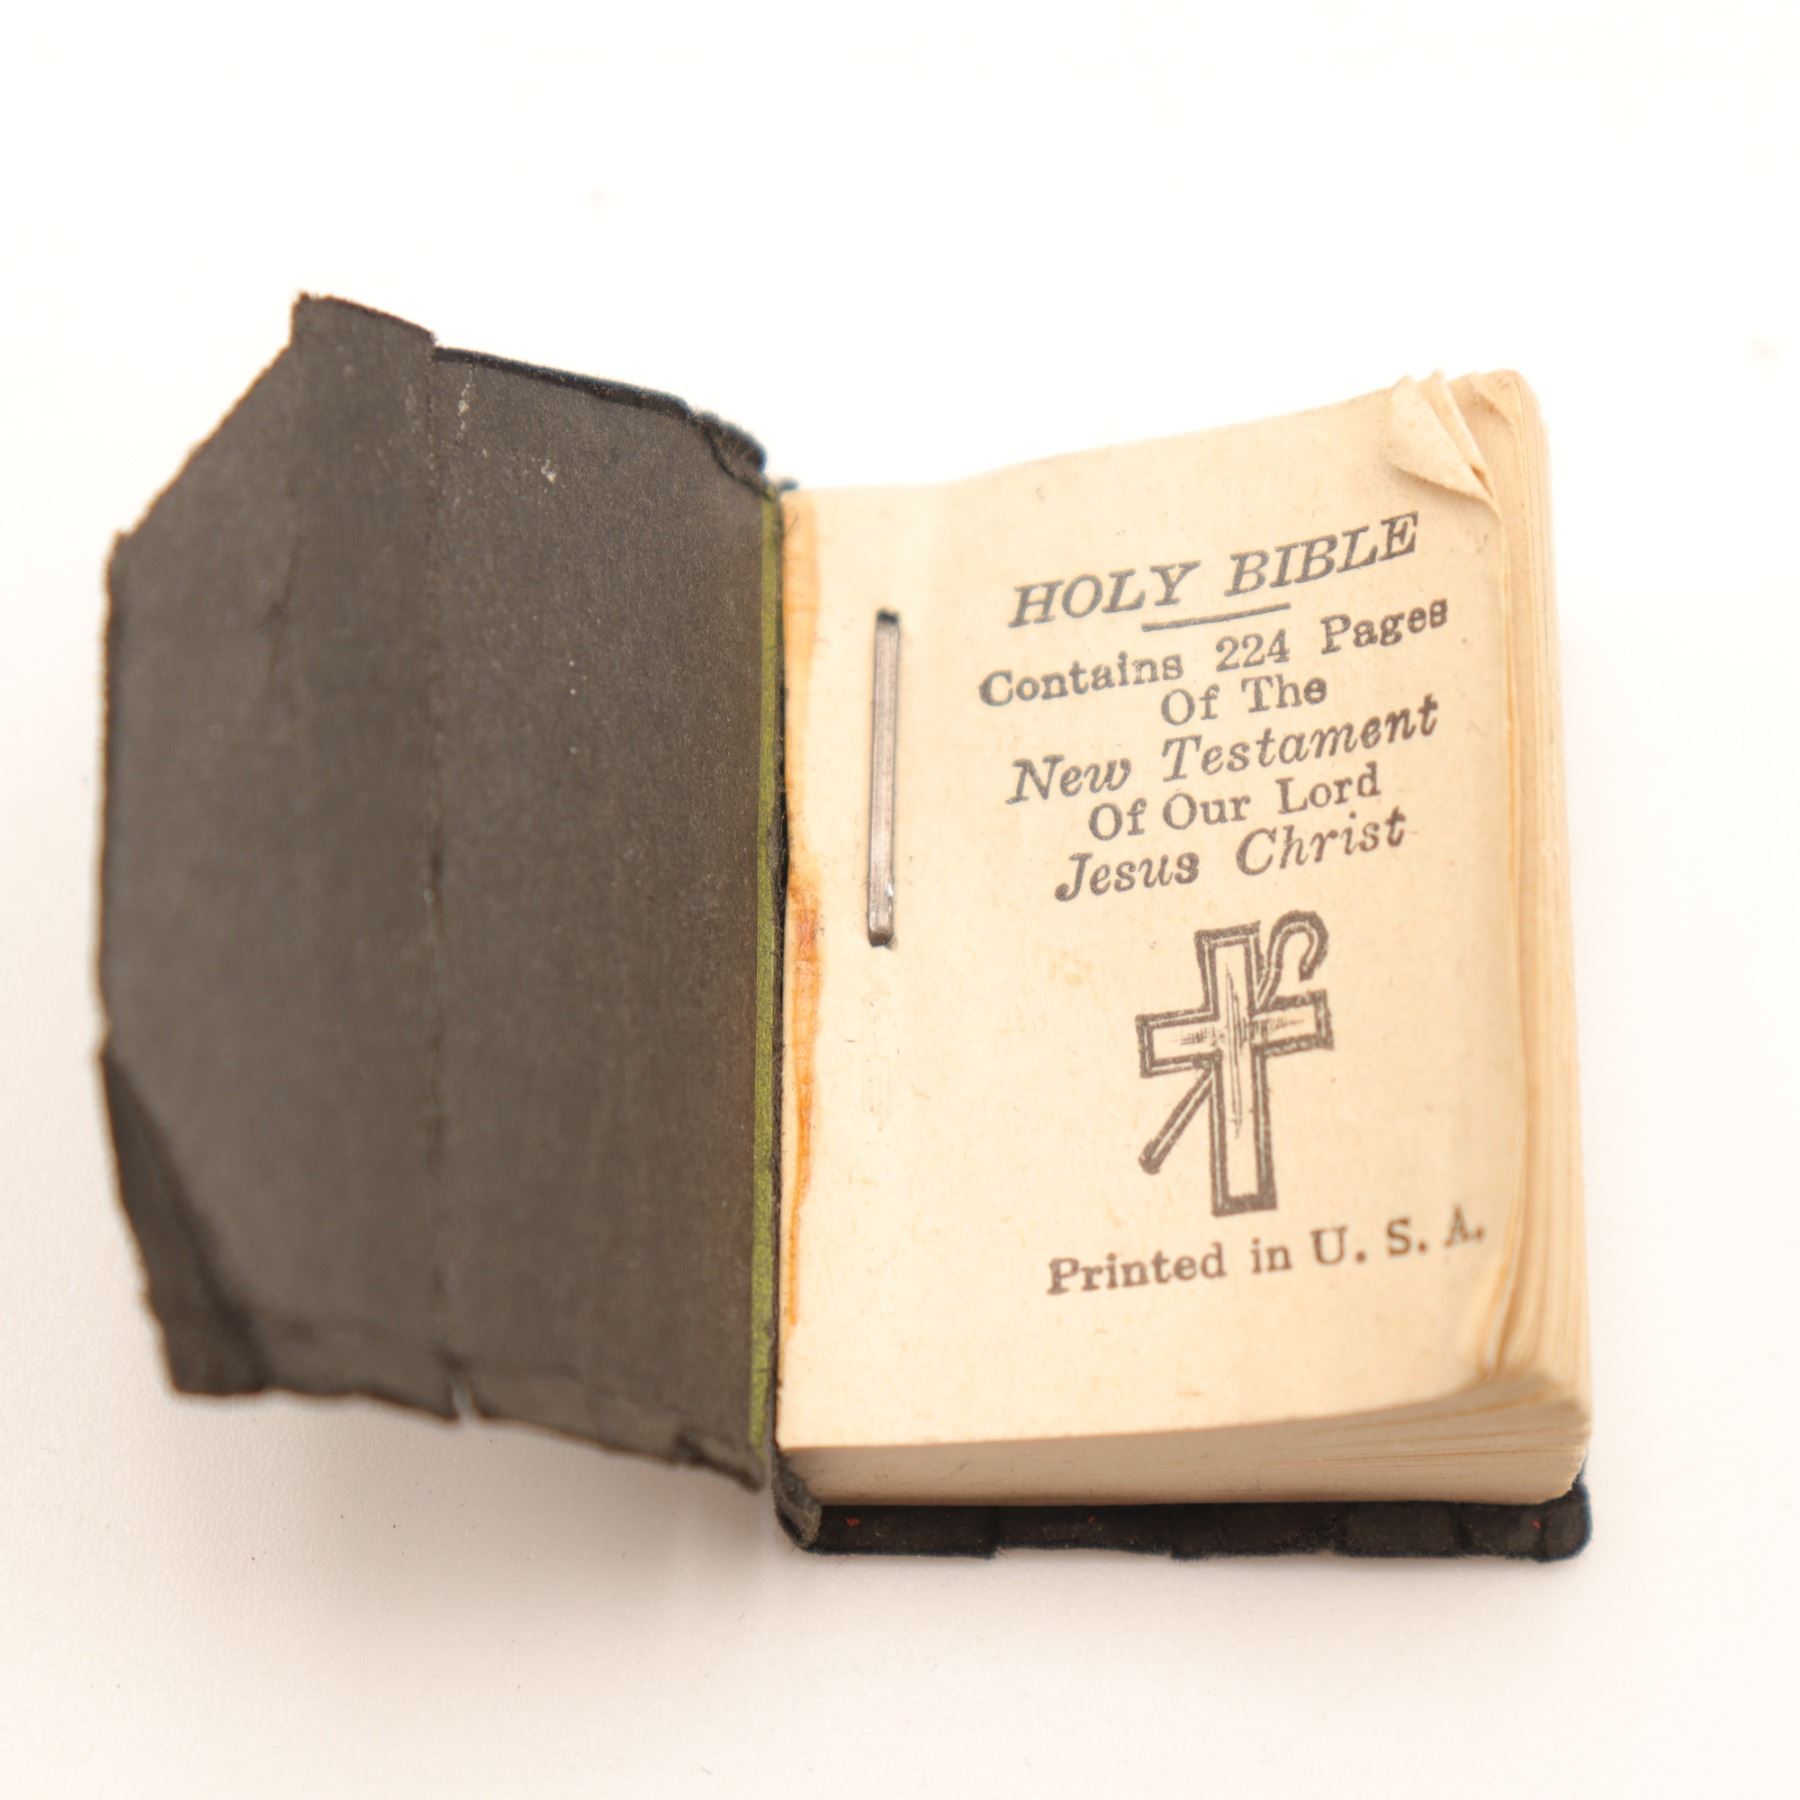 HOLY BIBLE
Contains 224 Pages
Of The
New Testament
Of Our Lord
Jesus Christ
Printed in U. S. A.